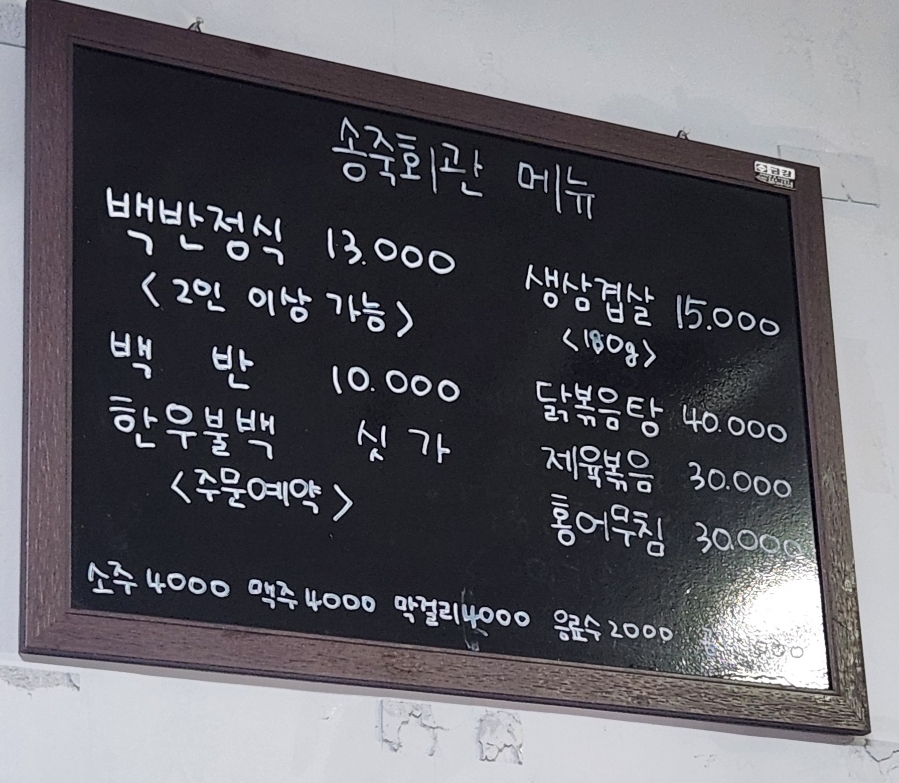 송죽회관 메뉴
백반정식 13.000
<2인 이상 가능>
백 반 10.000
한우불백 싯가
<주문예약>
생삼겹살 15.000
<180g>
닭볶음탕 40.000
제육볶음 30.000
홍어무침 30.000
소주 4000 맥주 4000 막걸리 4000 음료수 2000